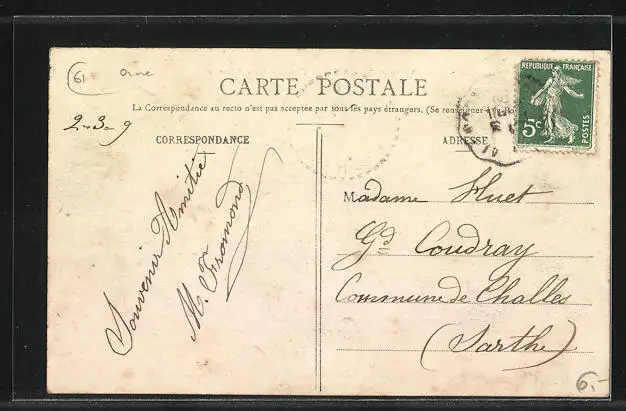 61 Orne
CARTE POSTALE
La Correspondance au recto n'est pas acceptée par tous les pays étrangers. (Se renseigner à la
2-3-9
CORRESPONDANCE
ADRESSE
REPUBLIQUE FRANÇAISE
5c
POSTES
Souvenir Amitié
M. Fromond
Madame Huet
Gd Coudray
Commune de Challes
(Sarthe)
6.-